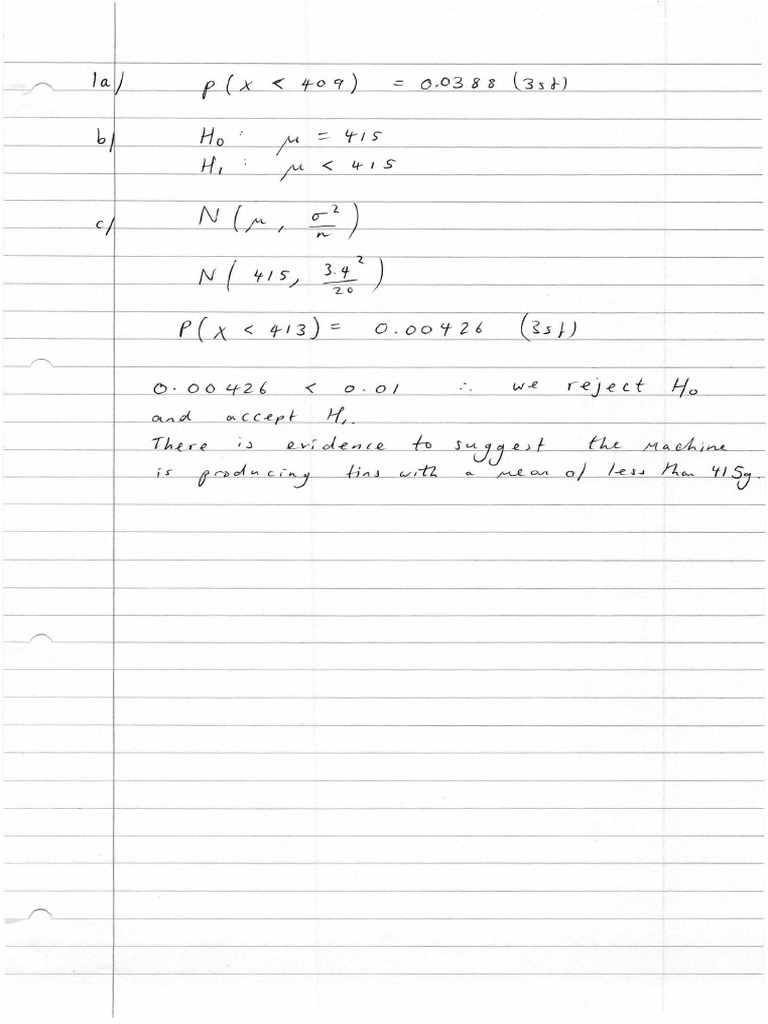 1a) P(X < 409) = 0.0388 (3sf)
b) H₀: μ = 415
H₁: μ < 415
c) N(μ, σ²/n)
N(415, 3.4²/20)
P(X < 413) = 0.00426 (3sf)
0.00426 < 0.01 ∴ we reject H₀
and accept H₁.
There is evidence to suggest the machine
is producing tins with a mean of less than 415g.